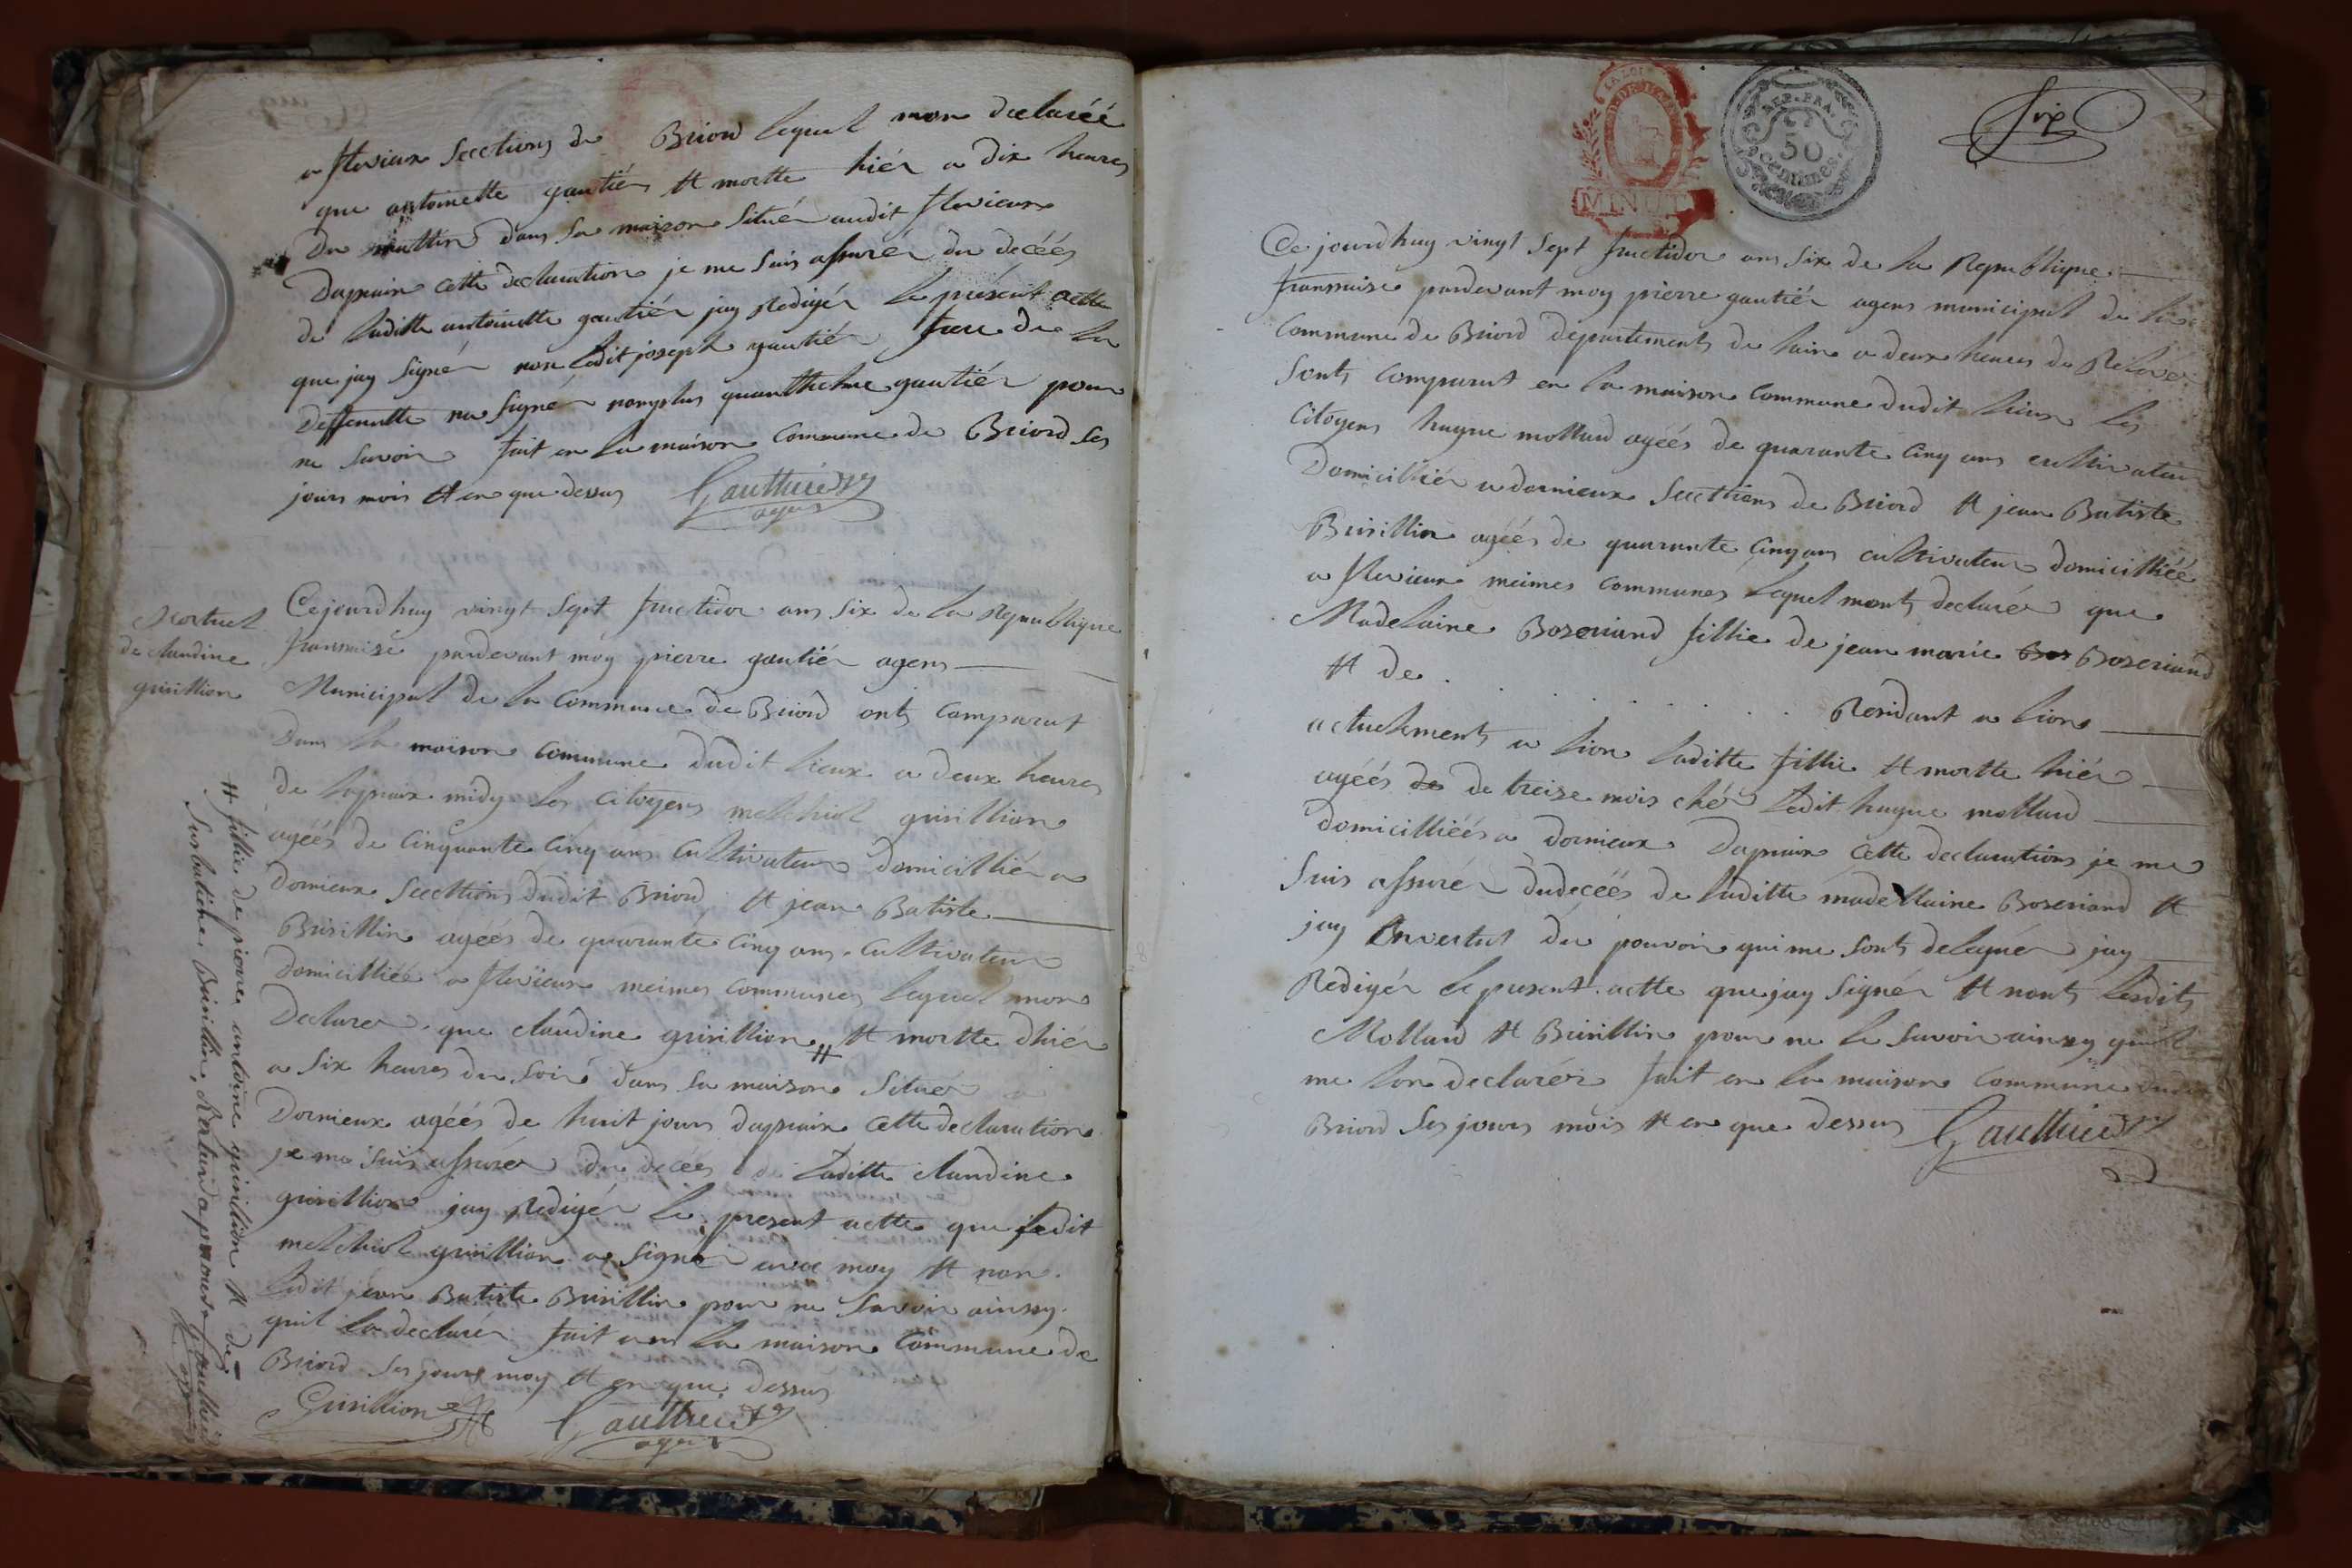 a flevieux Secctions de Briord lequel mon declaréé
que antoinette gautiér Et mortte hiér a dix heures
Du mattin Dans Sa maison Situér audit flevieux
Dapraix Cette declaration je me Suis assurér du décéés
de laditte antoinette gautiér jay Redigér le présent actte
que jay Signér non ledit joseph gautiér frere de la
Deffuntte na Signér nonplus quanthelme gautiér pour
ne Savoir fait en la maison Commune de Briord Ses
jours mois Et en que dessus Gautthier
agens
Mortuel
de claudine
guirillion
Cejourdhuy vingt Sept fructidor ans Six de la Republique
fransaise pardevant moy pierre gautiér agens
Municipal De la Commune de Briord onts Comparut
Dans la maison Commune dudit lieux a deux heures
de lapraix midy les Citoyens melchiol guirillion
agéés de Cinquante Cinq ans Cultivateur Domicilliér a
Dornieux Secctions dudit Briord Et jean Batiste
Burillin agéés de quarante Cinq ans Cultivateur
Domicilliéé a flevieux meimes Communes lequel mon
Declarer que claudine guirillion # Et mortte dhiér
a Six heures du Soiré dans Sa maison Situér a
Dornieux agéés de huit jours dapraix Cette declaration
je me Suis assurér du décéés de laditte claudine
guirillion jay Redigér le present actte que ledit
melchiol guirillion a Signér avec moy Et non
ledit jean Batiste Burillin pour ne Savoir ainssy
quil la declarér fait en la maison Commune de
Briord Ses jours moy Et en que dessus
Guirillion Gautthier
agens
# fillie de pierre antoine guirillion Et de
Surbatiene Burillin, Rature aprouver Gautthier
agens
MINUTE
REP. FRA.
50
centimes
Six
Ce jourdhuy vingt Sept fructidor ans Six de la Republique
fransaise pardevant moy pierre gautiér agens municipal de la
Commune de Briord departements de lain a deux heures du Relevér
Sonts Comparut en la maison Commune dudit lieux les
Citoyens hugue mollard agéés de quarante Cinq ans cultivateur
Domicilliér a dornieux Secctions de Briord Et jean Batiste
Burillin agéés de quarante Cinq ans cultivateur domicilliéé
a flevieux meimes Communes lequel monts declarér que
Madelaine Boseriand fillie de jean marie Bos Boseriand
Et de . . . . . . . . . Residant a lion
actuelements a lion laditte fillie Et mortte hiér
agéés de de treise mois ché ledit hugue mollard
domicilliéés a dornieux Dapraix Cette declarations je me
Suis assurér dudecéés de laditte madellaine Boseriand Et
jay Envertut du pouvoir qui me Sonts deleguér jay
Redigér le present actte que jay Signér Et nonts lesdits
Mollard Et Burillin pour ne le Savoir ainssy quil
me lon declarér fait en la maison Commune dudit
Briord Ses jours mois Et en que dessus Gautthier